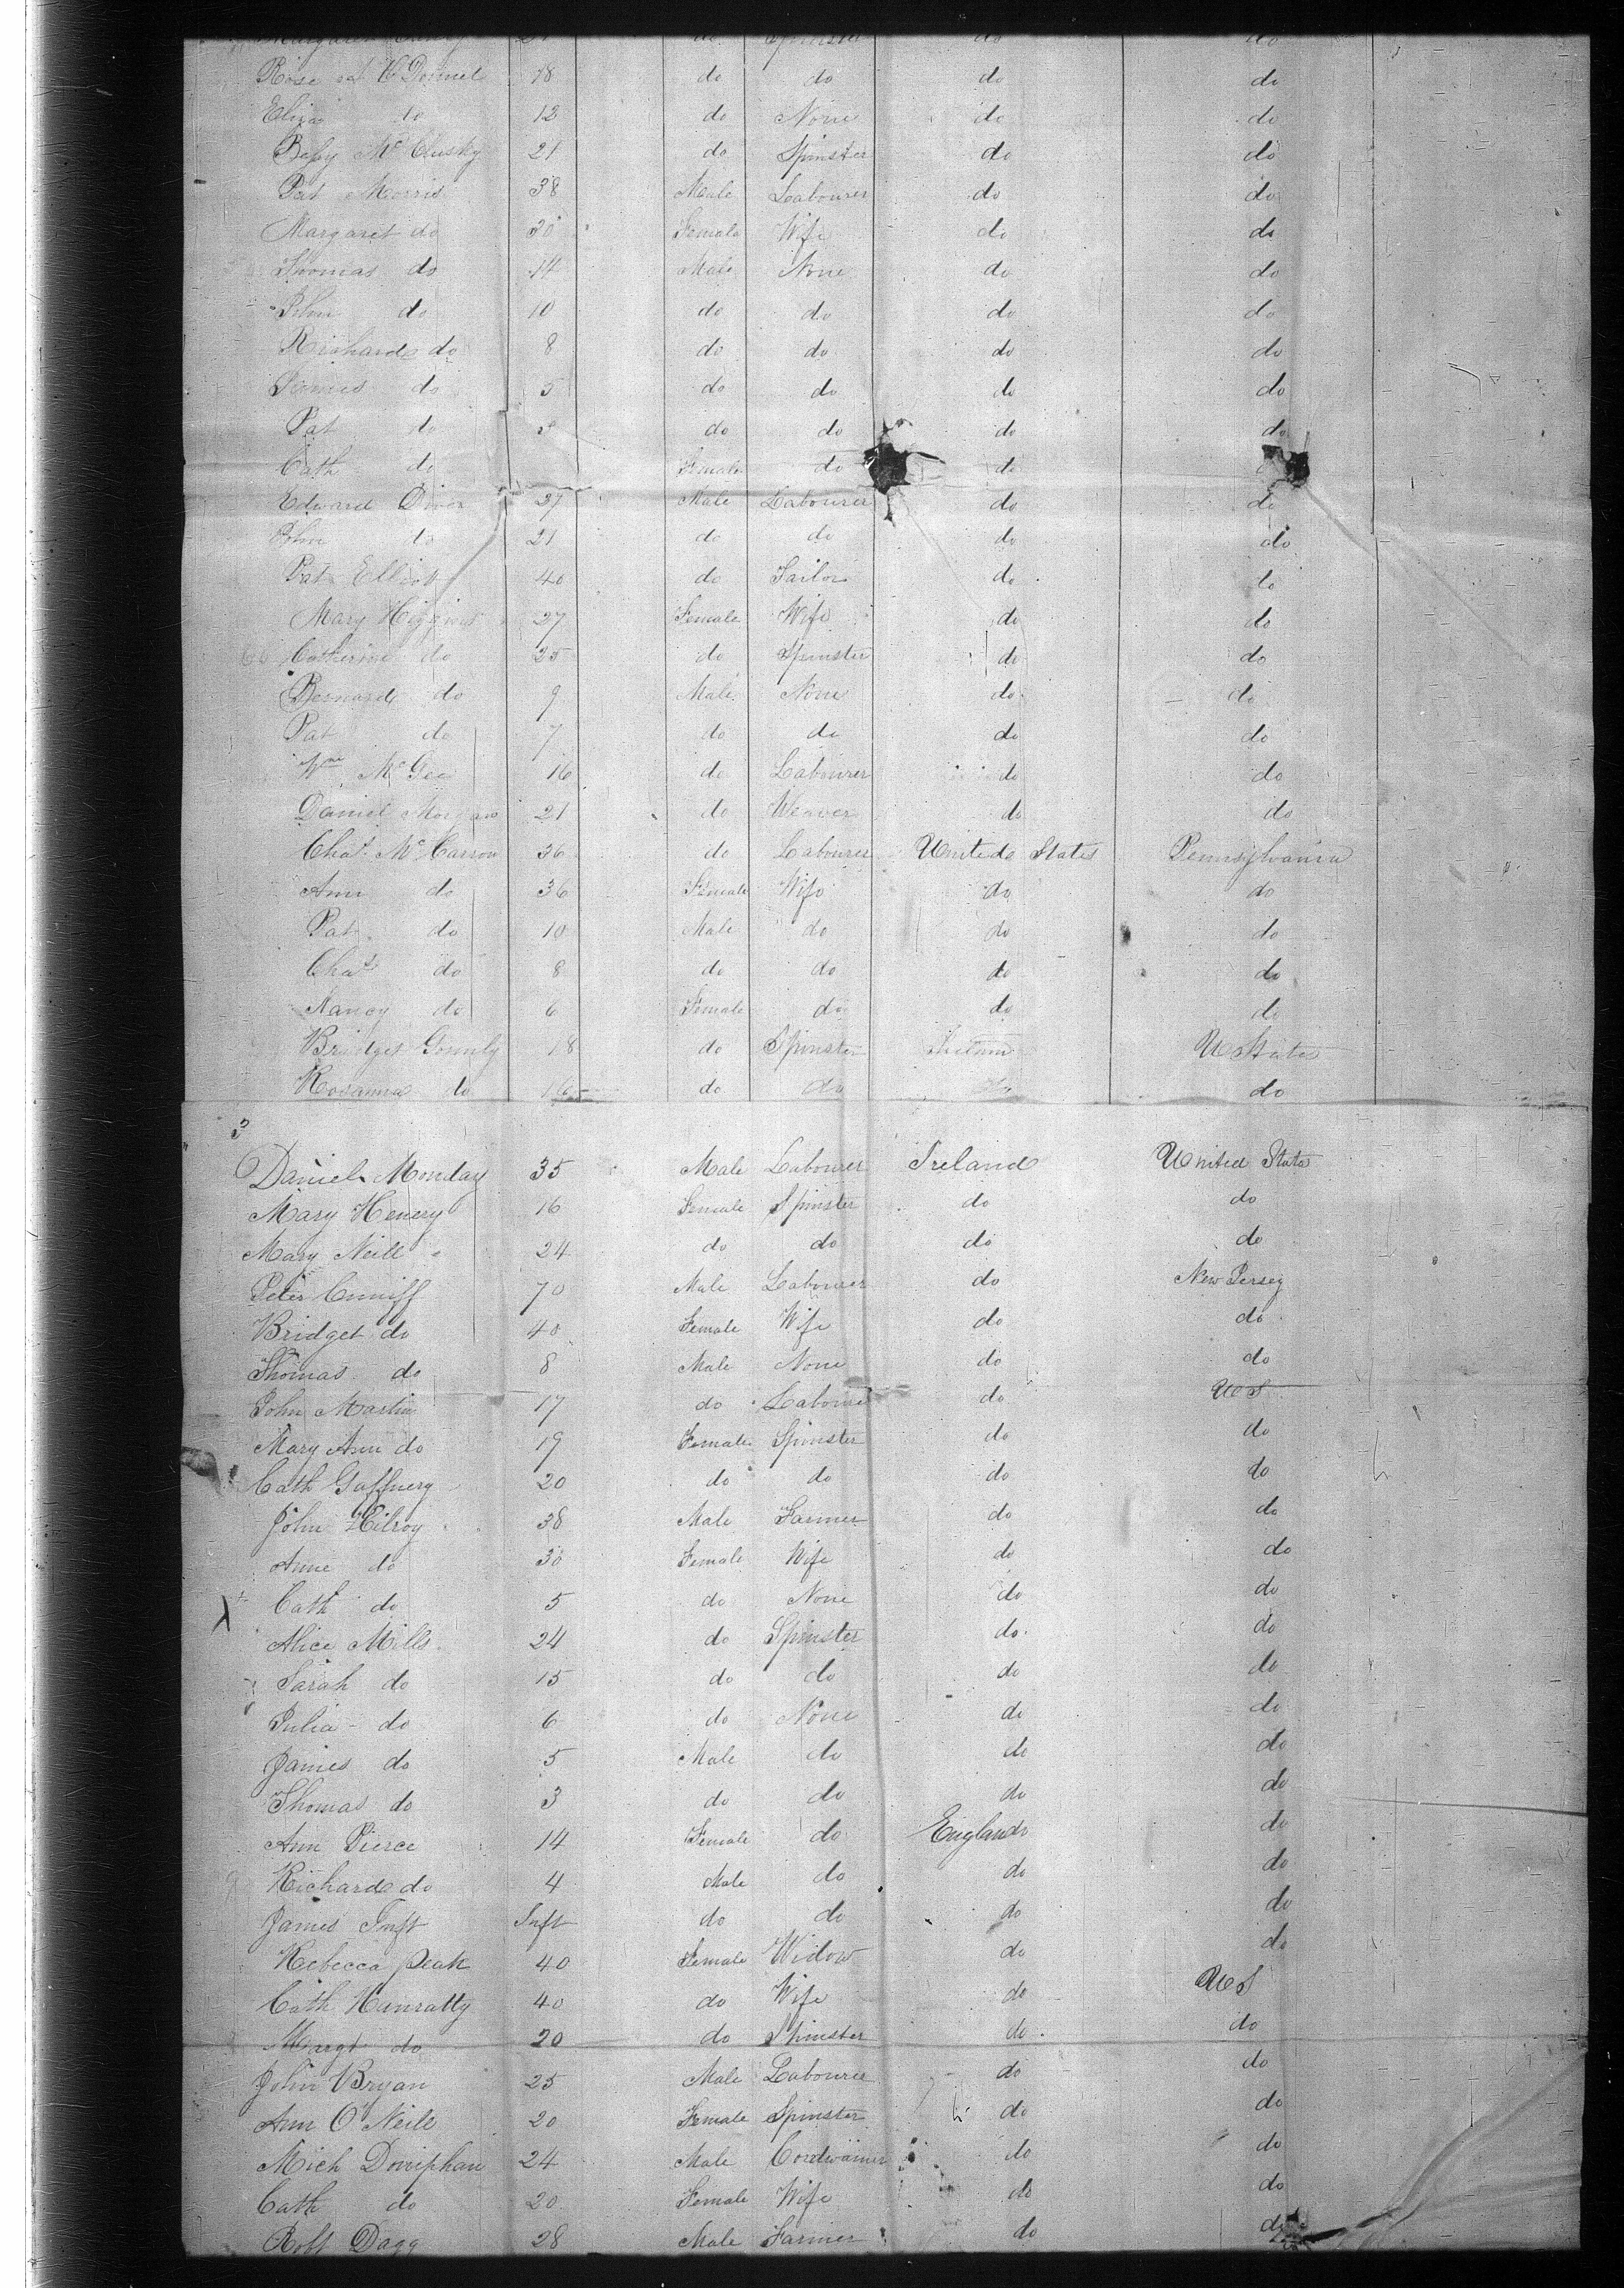 Margaret 21 do Spinster do do
Rose McDonnel 18 do do do do
Eliza do 12 do None do do
Betsy McClusky 21 do Spinster do do
Pat Morris 38 Male Labourer do do
Margaret do 30 Female Wife do do
Thomas do 14 Male None do do
John do 10 do do do do
Richard do 8 do do do do
James do 5 do do do do
Pat do do do do do
Cath do Female do do
Edward Diver 27 Male Labourer do do
John do 21 do do do do
Pat Elliot 40 do Tailor do do
Mary Higgins 27 Female Wife do do
Catherine do 25 do Spinster do do
Bernard do 9 Male None do do
Pat do 7 do do do do
Wm McGee 16 do Labourer do do
Daniel Morgan 21 do Weaver do do
Chas McCarron 36 do Labourer United States Pennsylvania
Ann do 36 Female Wife do do
Pat do 10 Male do do do
Chas do 8 do do do do
Nancy do 6 Female do do do
Bridget Gormly 18 do Spinster U States
Rosanna do 16 do do do
3
Daniel Monday 35 Male Labourer Ireland United States
Mary Henery 16 Female Spinster do do
Mary Neill 24 do do do do
Peter Cunniff 70 Male Labourer do New Jersey
Bridget do 40 Female Wife do do
Thomas do 8 Male None do do
John Martin 17 do Labourer do U S
Mary Ann do 19 Female Spinster do do
Cath Gaffnery 20 do do do do
John Kilroy 38 Male Farmer do do
Anne do 30 Female Wife do do
Cath do 5 do None do do
Alice Mills 24 do Spinster do do
Sarah do 15 do do do do
Julia do 6 do None do do
James do 5 Male do do do
Thomas do 3 do do do do
Ann Pierce 14 Female do England do
Richard do 4 Male do do do
James Inft Inft do do do do
Rebecca Peak 40 Female Widow do do
Cath Hanratty 40 do Wife do U S
Margt do 20 do Spinster do do
John Bryan 25 Male Labourer do do
Ann O'Neill 20 Female Spinster do do
Mich Doniphan 24 Male Cordwainer do do
Cath do 20 Female Wife do do
Robt Dagg 28 Male Farmer do do